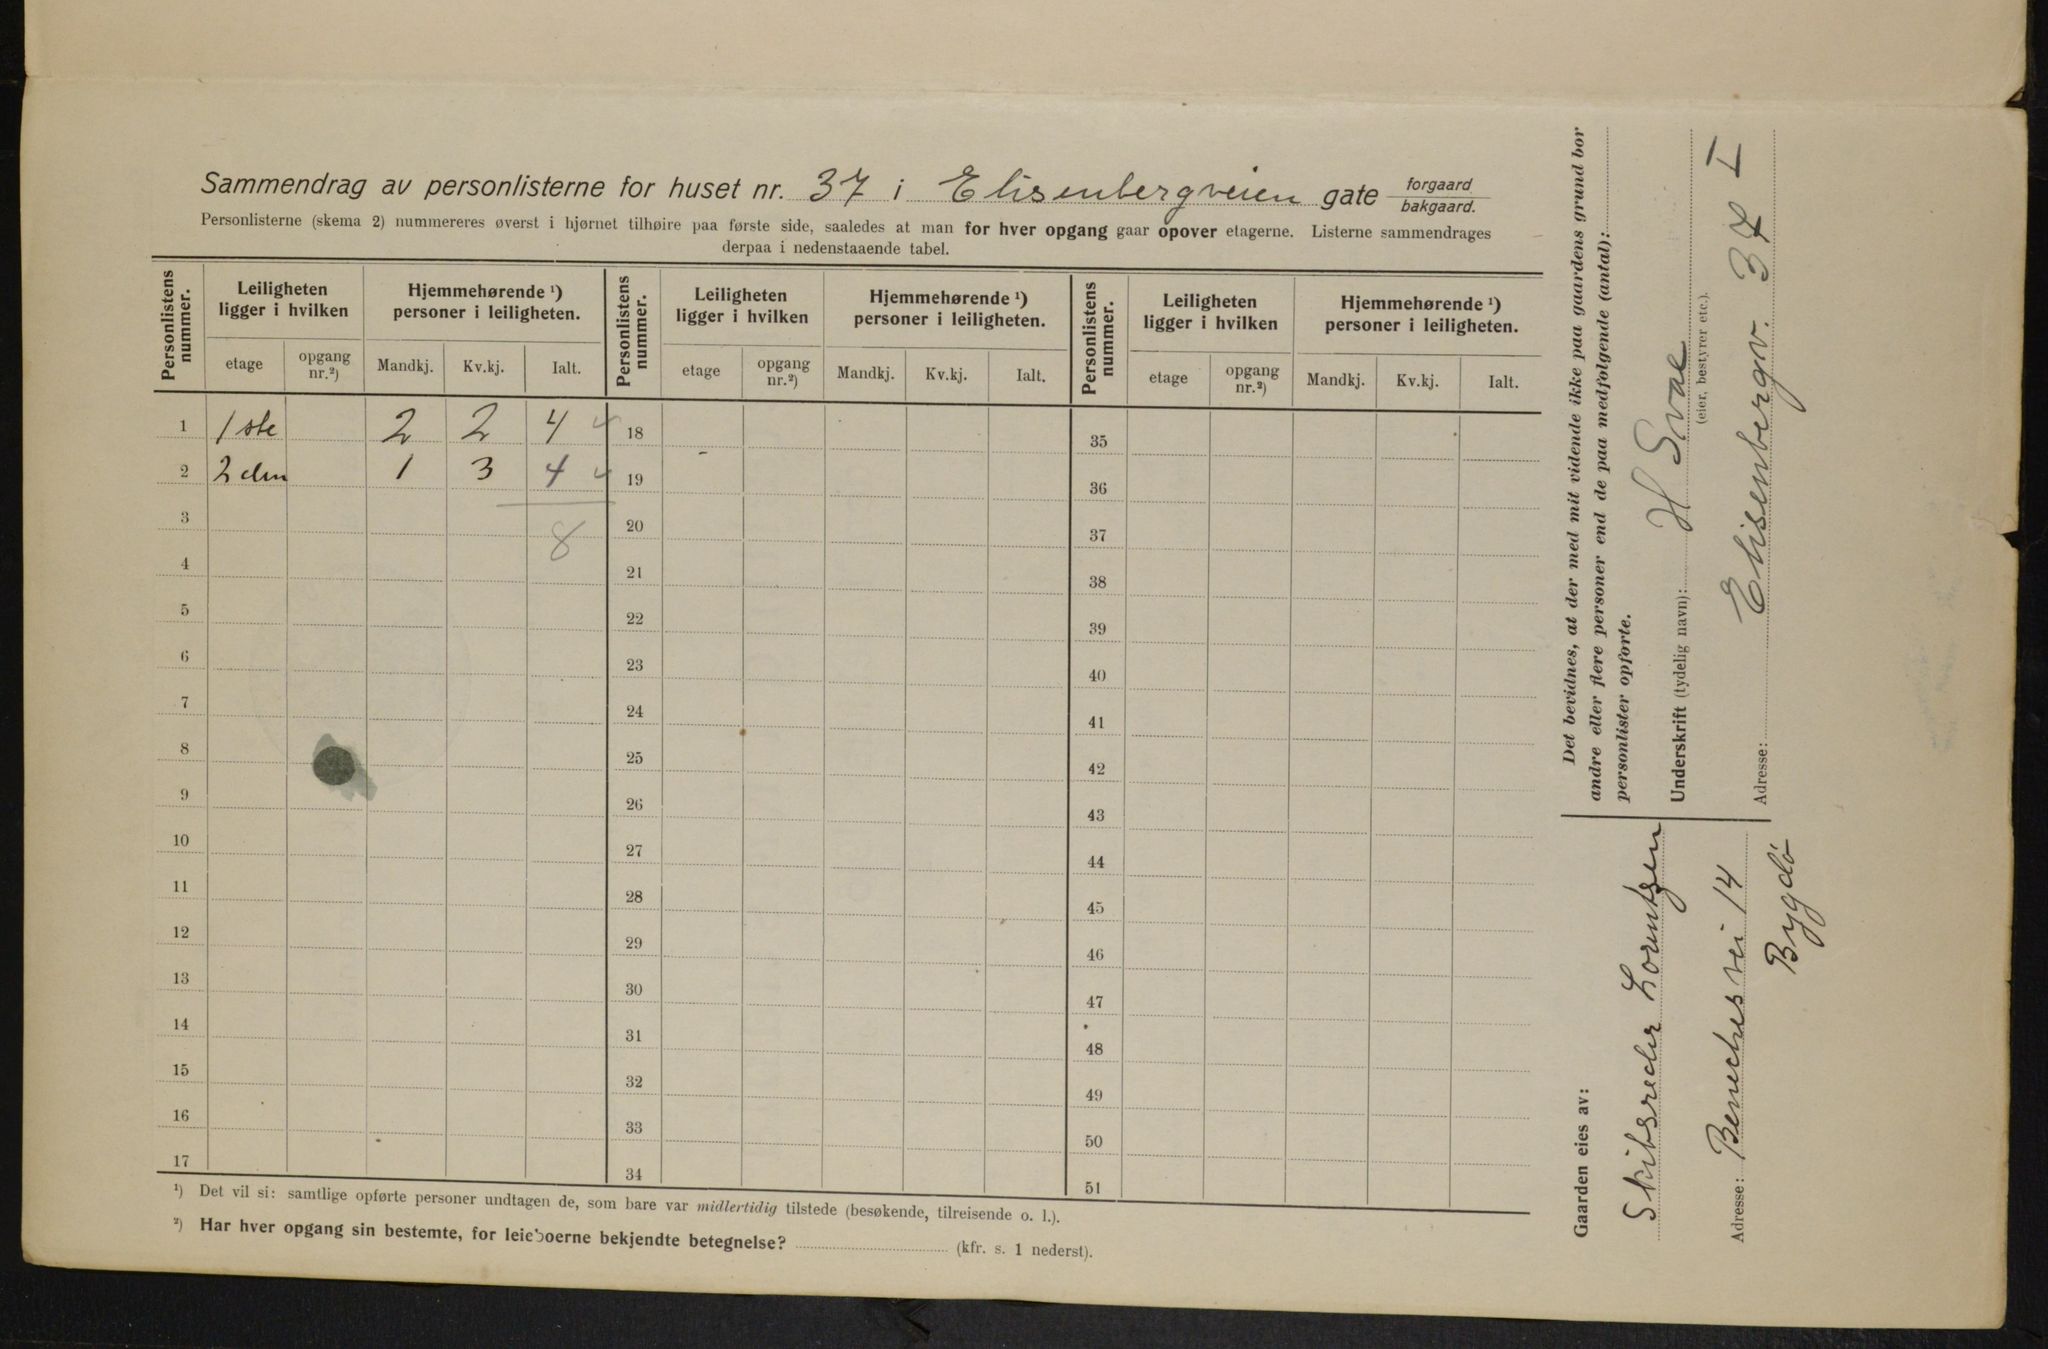 Sammendrag av personlisterne for huset nr. 37 i Elisenbergveien gate forgaard bakgaard.
Personlisterne (skema 2) nummereres øverst i hjørnet tilhøire paa første side, saaledes at man for hver opgang gaar opover etagerne. Listerne sammendrages
derpaa i nedenstaaende tabel.
Personlistens nummer. Leiligheten ligger i hvilken Hjemmehørende ¹) personer i leiligheten. Personlistens nummer. Leiligheten ligger i hvilken Hjemmehørende ¹) personer i leiligheten. Personlistens nummer. Leiligheten ligger i hvilken Hjemmehørende ¹) personer i leiligheten.
etage opgang nr.²) Mandkj. Kv.kj. Ialt. etage opgang nr.²) Mandkj. Kv.kj. Ialt. etage opgang nr.²) Mandkj. Kv.kj. Ialt.
1 1ste 2 2 4 4 18 35
2 2den 1 3 4 4 19 36
3 8 20 37
4 21 38
5 22 39
6 23 40
7 24 41
8 25 42
9 26 43
10 27 44
11 28 45
12 29 46
13 30 47
14 31 48
15 32 49
16 33 50
17 34 51
¹) Det vil si: samtlige opførte personer undtagen de, som bare var midlertidig tilstede (besøkende, tilreisende o. l.).
²) Har hver opgang sin bestemte, for leieboerne bekjendte betegnelse? (kfr. s. 1 nederst).
Det bevidnes, at der med mit vidende ikke paa gaardens grund bor
andre eller flere personer end de paa medfølgende (antal):
personlister opførte.
Underskrift (tydelig navn): H Svae
(eier, bestyrer etc.).
Adresse: Elisenbergv. 37 I
Gaarden eies av:
Skibsreder Lorentzen
Adresse: Benechesvei 14
Bygdö